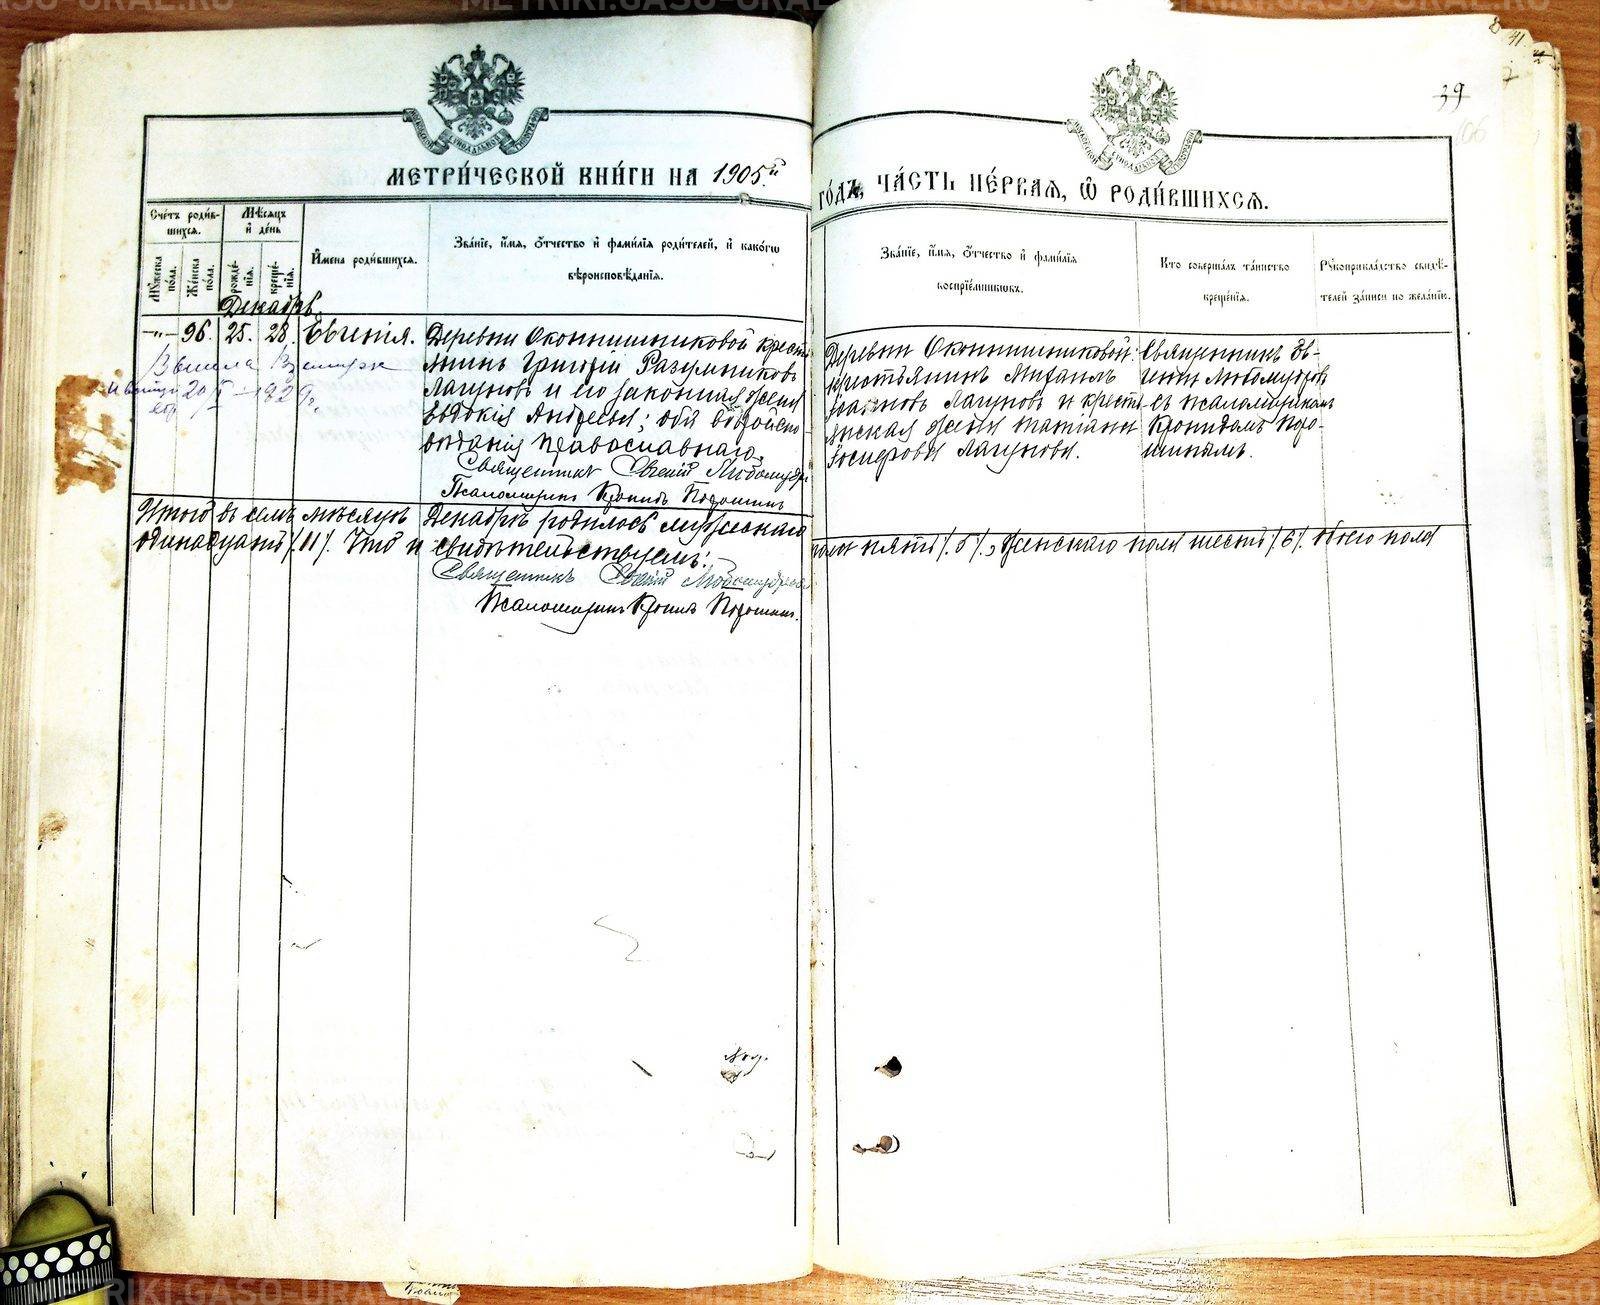 METRIKI.GASO-URAL.RU
39
МЕТРИ́ЧЕСКОЙ КНИ́ГИ НА 1905й
ГО́ДЪ, ЧА́СТЬ ПЕ́РВАЯ, Ѡ РОДИ́ВШИХСЯ.
Сче́тъ роди́вшихся.
Мѣ́сяцъ и де́нь
Му́жеска по́ла.
Же́нска по́ла.
рожде́нія.
креще́нія.
И́мена роди́вшихся.
Зва́ніе, и́мя, ѻ́тчество и фами́лія роди́телей, и како́гѡ
вѣроисповѣ́данія.
Зва́ніе, и́мя, ѻ́тчество и фами́лія
воспріе́мниковъ.
Кто соверша́лъ та́инство
креще́нія.
Рꙋкоприкла́дство свидѣ́-
телей за́писи по жела́нію.
Декабрь.
-"- 96. 25. 28. Евгенія.
Деревни Оконишниковой крестья
нинъ Григорій Разумниковъ
Лагуновъ и его законная жена
Евдокія Андреева; оба вѣроиспо-
вѣданія православнаго.
Священникъ Евгеній Любомудровъ
Псаломщикъ Кронидъ Порошинъ
Вышла
20/I - 1929 г.
Деревни Оконишниковой:
крестьянинъ Михаилъ
Іоанновъ Лагуновъ и крестья-
нская жена Татіана
Іосифова Лагунова.
Священникъ Ев-
геній Любомудровъ
съ псаломщикомъ
Кронидомъ Поро-
шинымъ.
Итого въ семъ мѣсяцѣ Декабрѣ родилось мужескаго
пола пять /.5/., женскаго пола шесть /6/. обоего пола
одинадцать /.11/. Что и свидѣтельствуемъ:
Священникъ Евгеній Любомудровъ
Псаломщикъ Кронидъ Порошинъ.
METRIKI.GASO-URAL.RU